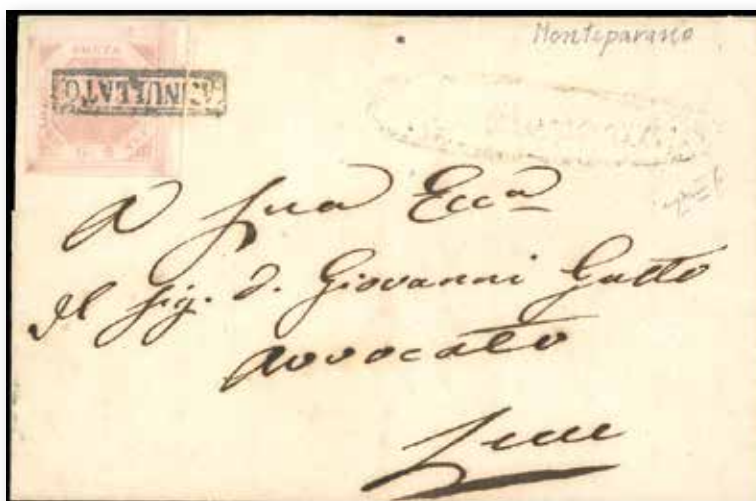 Monteparano
POSTA
ANNULLATO
G. 2
A Sua Ecca
Il Sig. D. Giovanni Gatto
Avvocato
Lecce